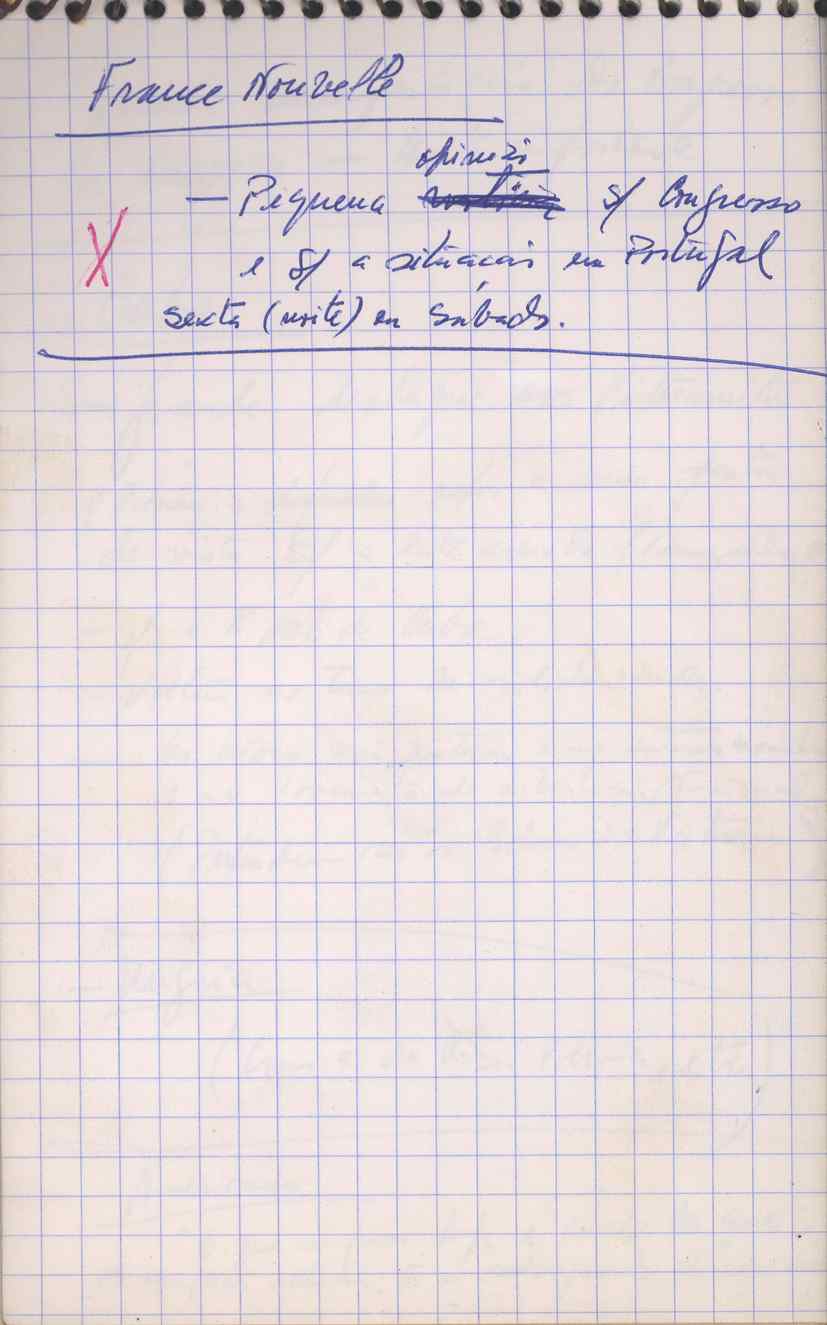 France Nouvelle
opinião
— Pequena s/ Congresso
e s/ a situação em Portugal
sexta (noite) ou Sábado.